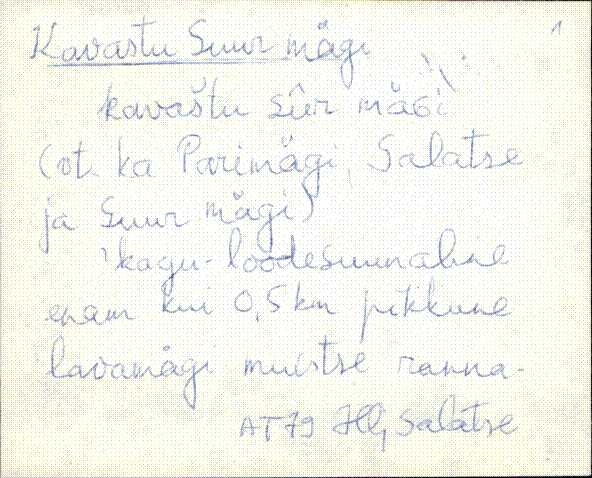 Kavastu Suur mägi
1
kavaštu sūr mäGi
(vt. ka Parimägi, Salatse
ja Suur mägi)
'kagu-loodesuunaline
enam kui 0,5 km pikkune
lavamägi muistse ranna-
AT79 HU, Salatse